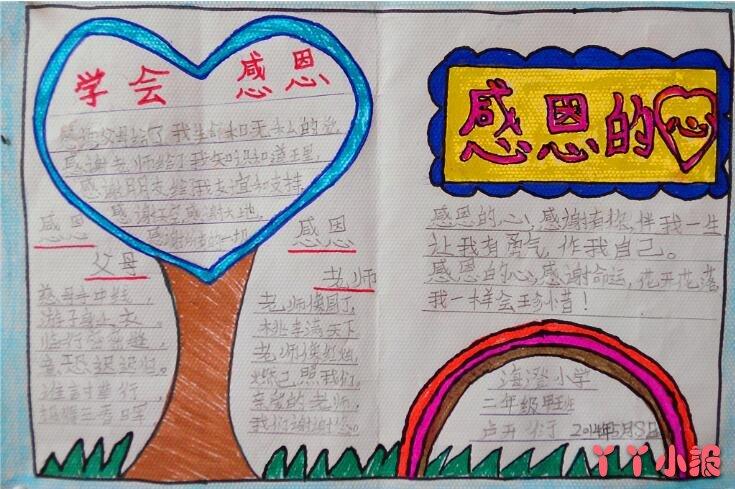 学会 感恩
感谢父母给了我生命和无私的爱,
感谢老师给了我知识和道理,
感谢朋友给我友谊和支持,
感谢天空感谢大地,
感谢 的一切
感恩
父母
慈母手中线,
游子身上衣,
临行密密缝,
意恐迟迟归。
谁言寸草行,
感恩
老师
老师像园丁,
桃李满天下,
老师像红烛,
燃己照我们。
亲爱的老师,
我们谢谢您。
感恩的心
感恩的心,感谢有你,伴我一生
让我有勇气,作我自己。
感恩的心,感谢命运,花开花落
我一样会珍惜!
海澄小学
二年级 班
2014年5月8日
丫丫小报